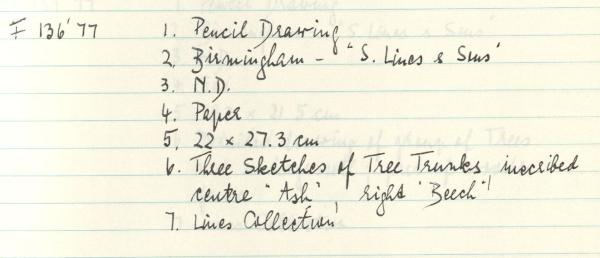 F 136'77 1. Pencil Drawing
2. Birmingham - "S. Lines & Sons"
3. N.D.
4. Paper
5. 22 x 27.3 cm
6. Three Sketches of Tree Trunks inscribed
centre "Ash" right "Beech"
7. Lines Collection